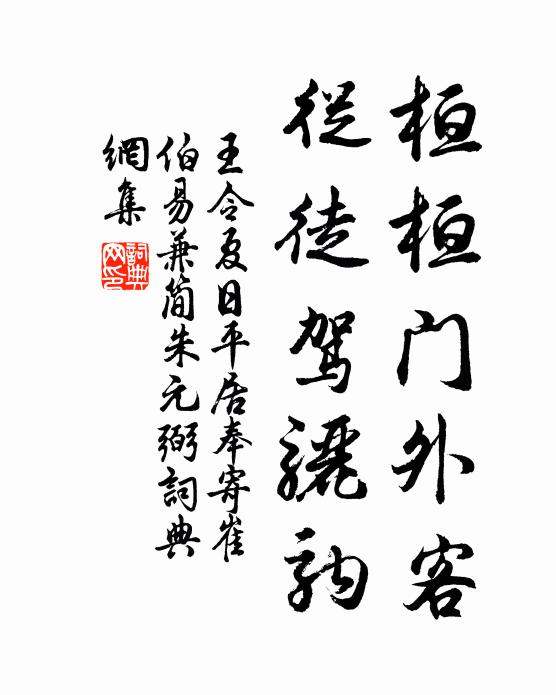 桓桓门外客
從徒駕驪䮄
王令夏日平居奉寄崔
伯易兼简朱元弼詞典
網集
詞典
网印